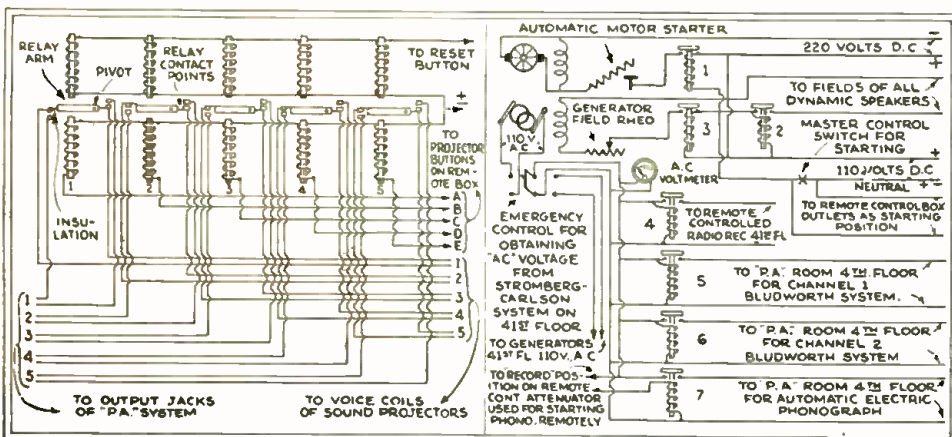 RELAY
ARM
PIVOT
RELAY
CONTACT
POINTS
TO RESET
BUTTON
TO
PROJECTOR
BUTTONS
ON REM-
OTE BOX
1
2
3
4
5
A
B
C
D
E
INSU-
LATION
1
2
3
4
5
1
2
3
4
5
TO OUTPUT JACKS
OF "P.A." SYSTEM
TO VOICE COILS
OF SOUND PROJECTORS
AUTOMATIC MOTOR STARTER
220 VOLTS D.C
1
TO FIELDS OF ALL
DYNAMIC SPEAKERS
GENERATOR
FIELD RHEO
3
2
MASTER CONTROL
SWITCH FOR
STARTING
110 V.
A C
A.C
VOLTMETER
110 VOLTS D.C
NEUTRAL
TO REMOTE CONTROL BOX
OUTLETS AS STARTING
POSITION
EMERGENCY
CONTROL FOR
OBTAINING
"AC" VOLTAGE
FROM
STROMBERG-
CARLSON
SYSTEM ON
41ST FLOOR
4
TO REMOTE
CONTROLLED
RADIO REC 41ST FL
5
TO "P.A." ROOM 4TH FLOOR
FOR CHANNEL 1
BLUDWORTH SYSTEM.
6
TO "P.A." ROOM 4TH FLOOR
FOR CHANNEL 2
BLUDWORTH SYSTEM
TO GENERATORS
41ST FL 110V. A C
TO RECORD POS-
ITION ON REMOTE
CONT ATTENUATOR
USED FOR STARTING
PHONO. REMOTELY
7
TO "P.A" ROOM 4TH FLOOR
FOR AUTOMATIC ELECTRIC
PHONOGRAPH